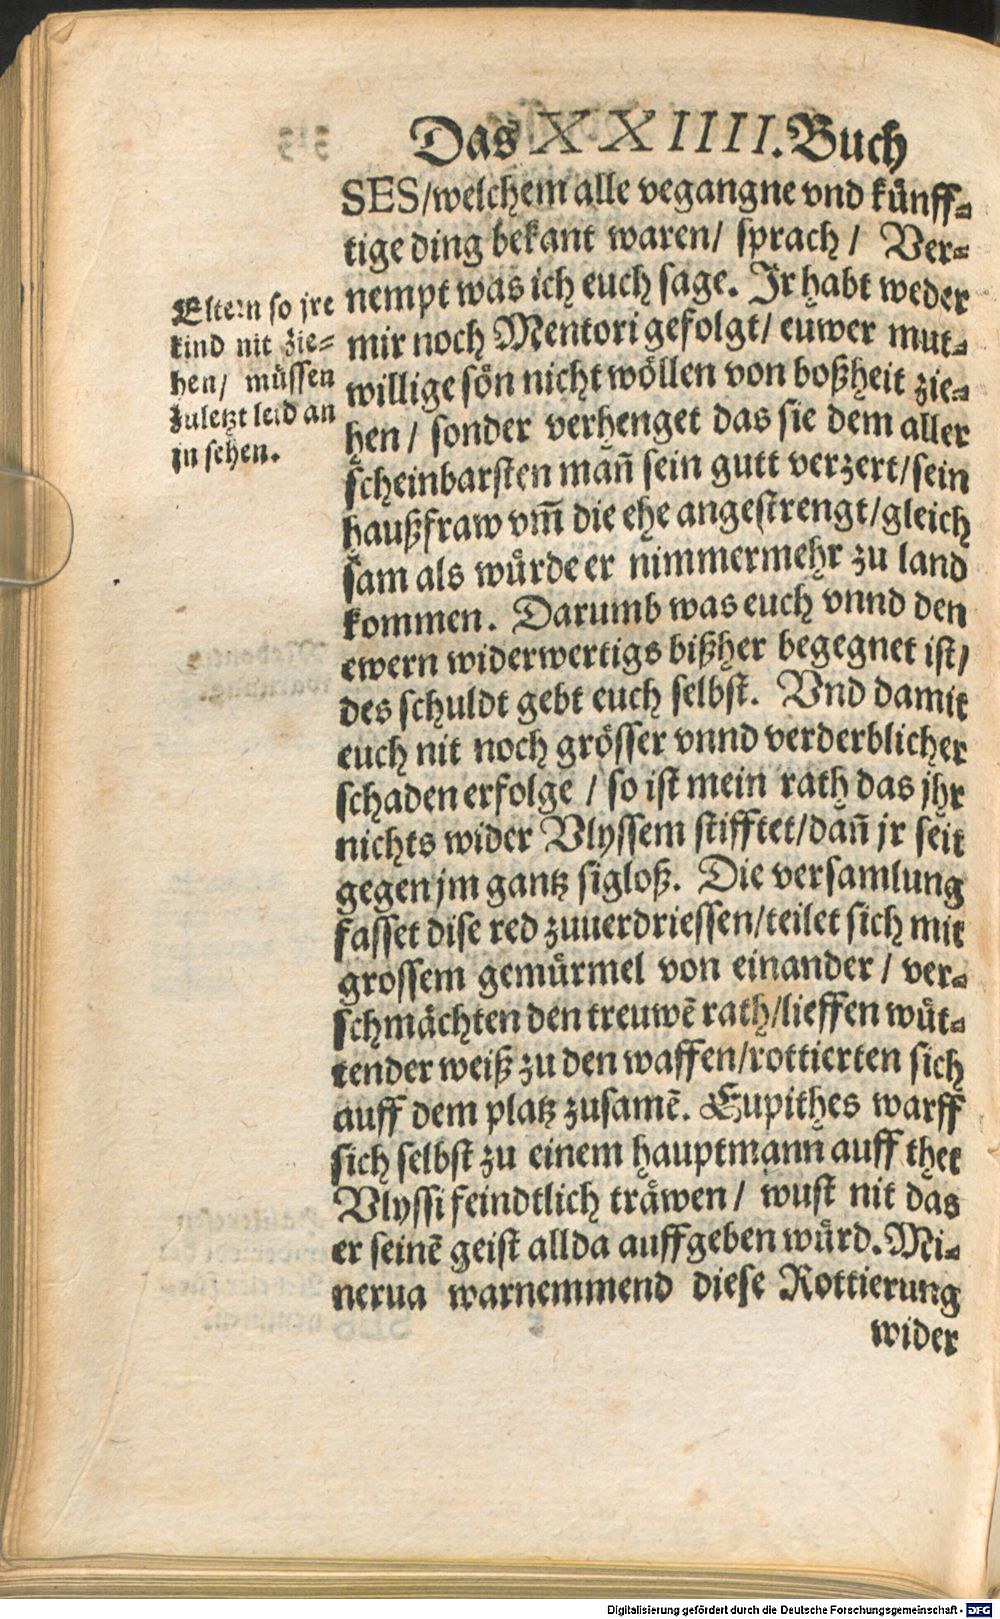 Das XXIIII. Buch
SES/welchem alle vegangne vnd künff⸗
tige ding bekant waren/ sprach/ Ver⸗
nempt was ich euch sage. Ir habt weder
mir noch Mentori gefolgt/ euwer mut⸗
willige sön nicht wöllen von boßheit zie⸗
hen/ sonder verhenget das sie dem aller
scheinbarsten mañ sein gutt verzert/sein
haußfraw vm̃ die ehe angestrengt/gleich
sam als wuͤrde er nimmermehr zu land
kommen. Darumb was euch vnnd den
ewern widerwertigs bißher begegnet ist/
des schuldt gebt euch selbst. Vnd damit
euch nit noch grösser vnnd verderblicher
schaden erfolge / so ist mein rath das jhr
nichts wider Vlyssem stifftet/dañ jr seit
gegen jm gantz sigloß. Die versamlung
fasset dise red zuuerdriessen/teilet sich mit
grossem gemürmel von einander / ver⸗
schmaͤchten den treuwẽ rath/lieffen wuͤt⸗
tender weiß zu den waffen/rottierten sich
auff dem platz zusamẽ. Eupithes warff
sich selbst zu einem hauptmann auff thet
Vlyssi feindtlich traͤwen/ wust nit das
er seinẽ geist allda auffgeben wuͤrd. Mi⸗
nerua warnemmend diese Rottierung
wider
Eltern so jre
kind nit zie⸗
hen/ muͤssen
zuletzt leid an
jn sehen.
Digitalisierung gefördert durch die Deutsche Forschungsgemeinschaft - DFG